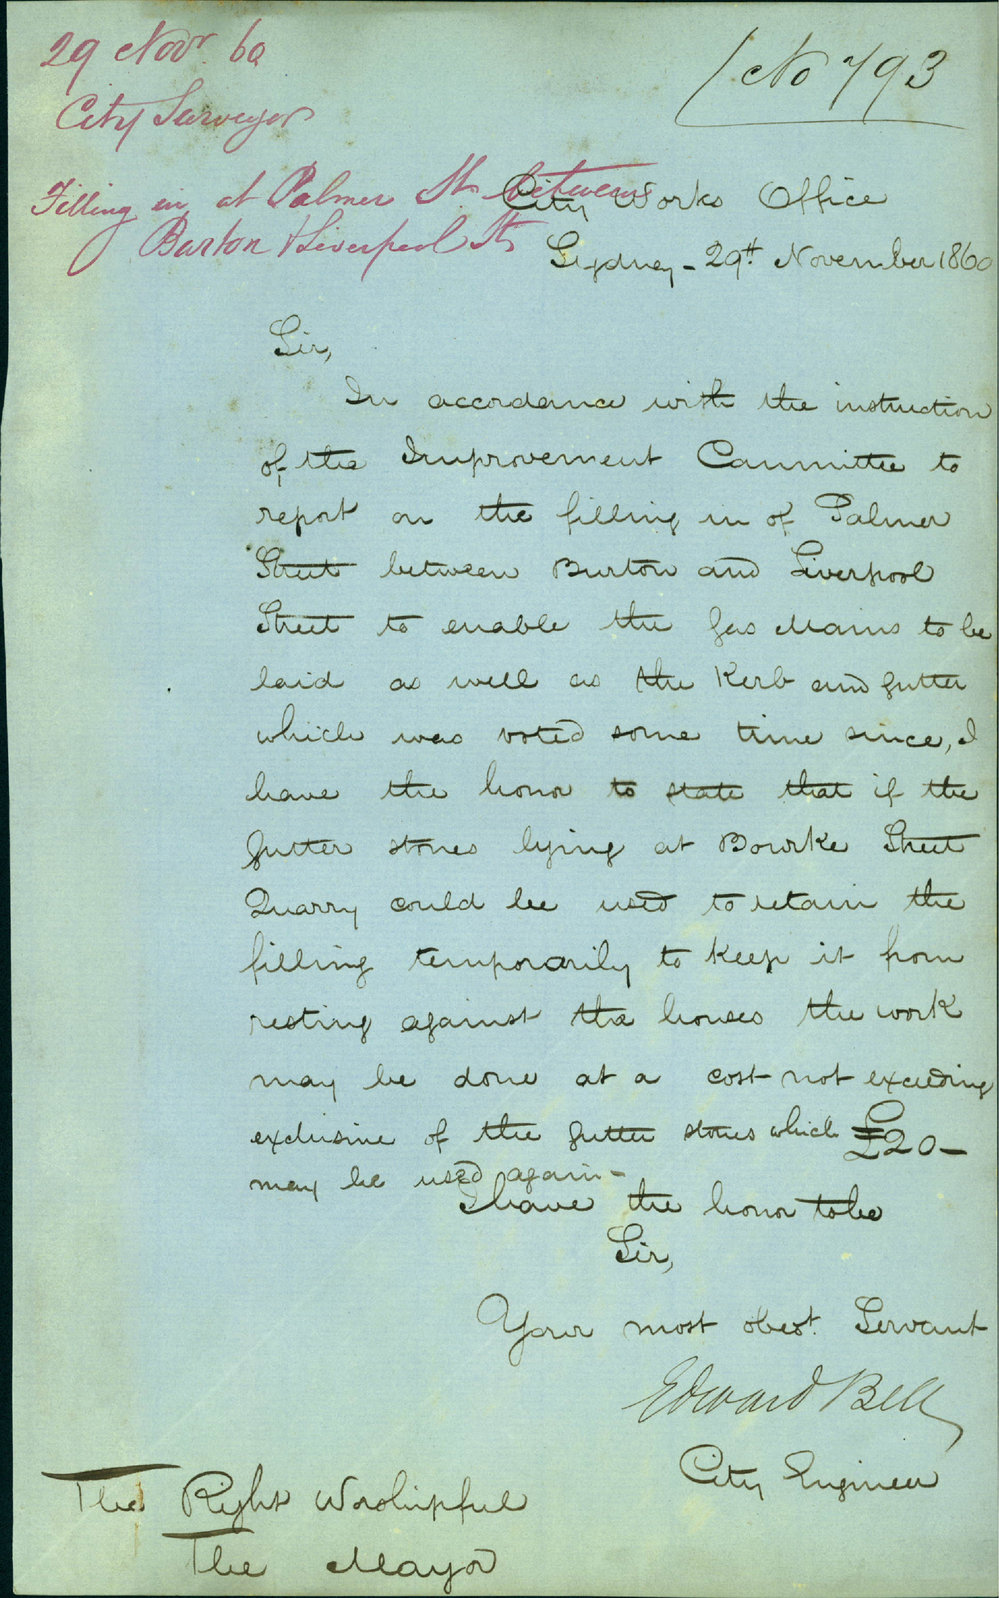 29 Novr. 60
City Surveyor
Filling in at Palmer St. between
Burton & Liverpool Sts
No 793
City Works Office
Sydney - 29th November 1860
Sir,
In accordance with the instruction
of the Improvement Committee to
report on the filling in of Palmer
Street between Burton and Liverpool
Street to enable the gas Mains to be
laid as well as the Kerb and gutter
which was voted some time since, I
have the honor to state that if the
gutter stones lying at Bourke Street
Quarry could be used to retain the
filling temporarily to keep it from
resting against the houses the work
may be done at a cost not exceeding
exclusive of the gutter stones which £20-
may be used again-
I have the honor to be
Sir,
Your most obedt. Servant
Edward Bell
City Engineer
The Right Worshipful
The Mayor